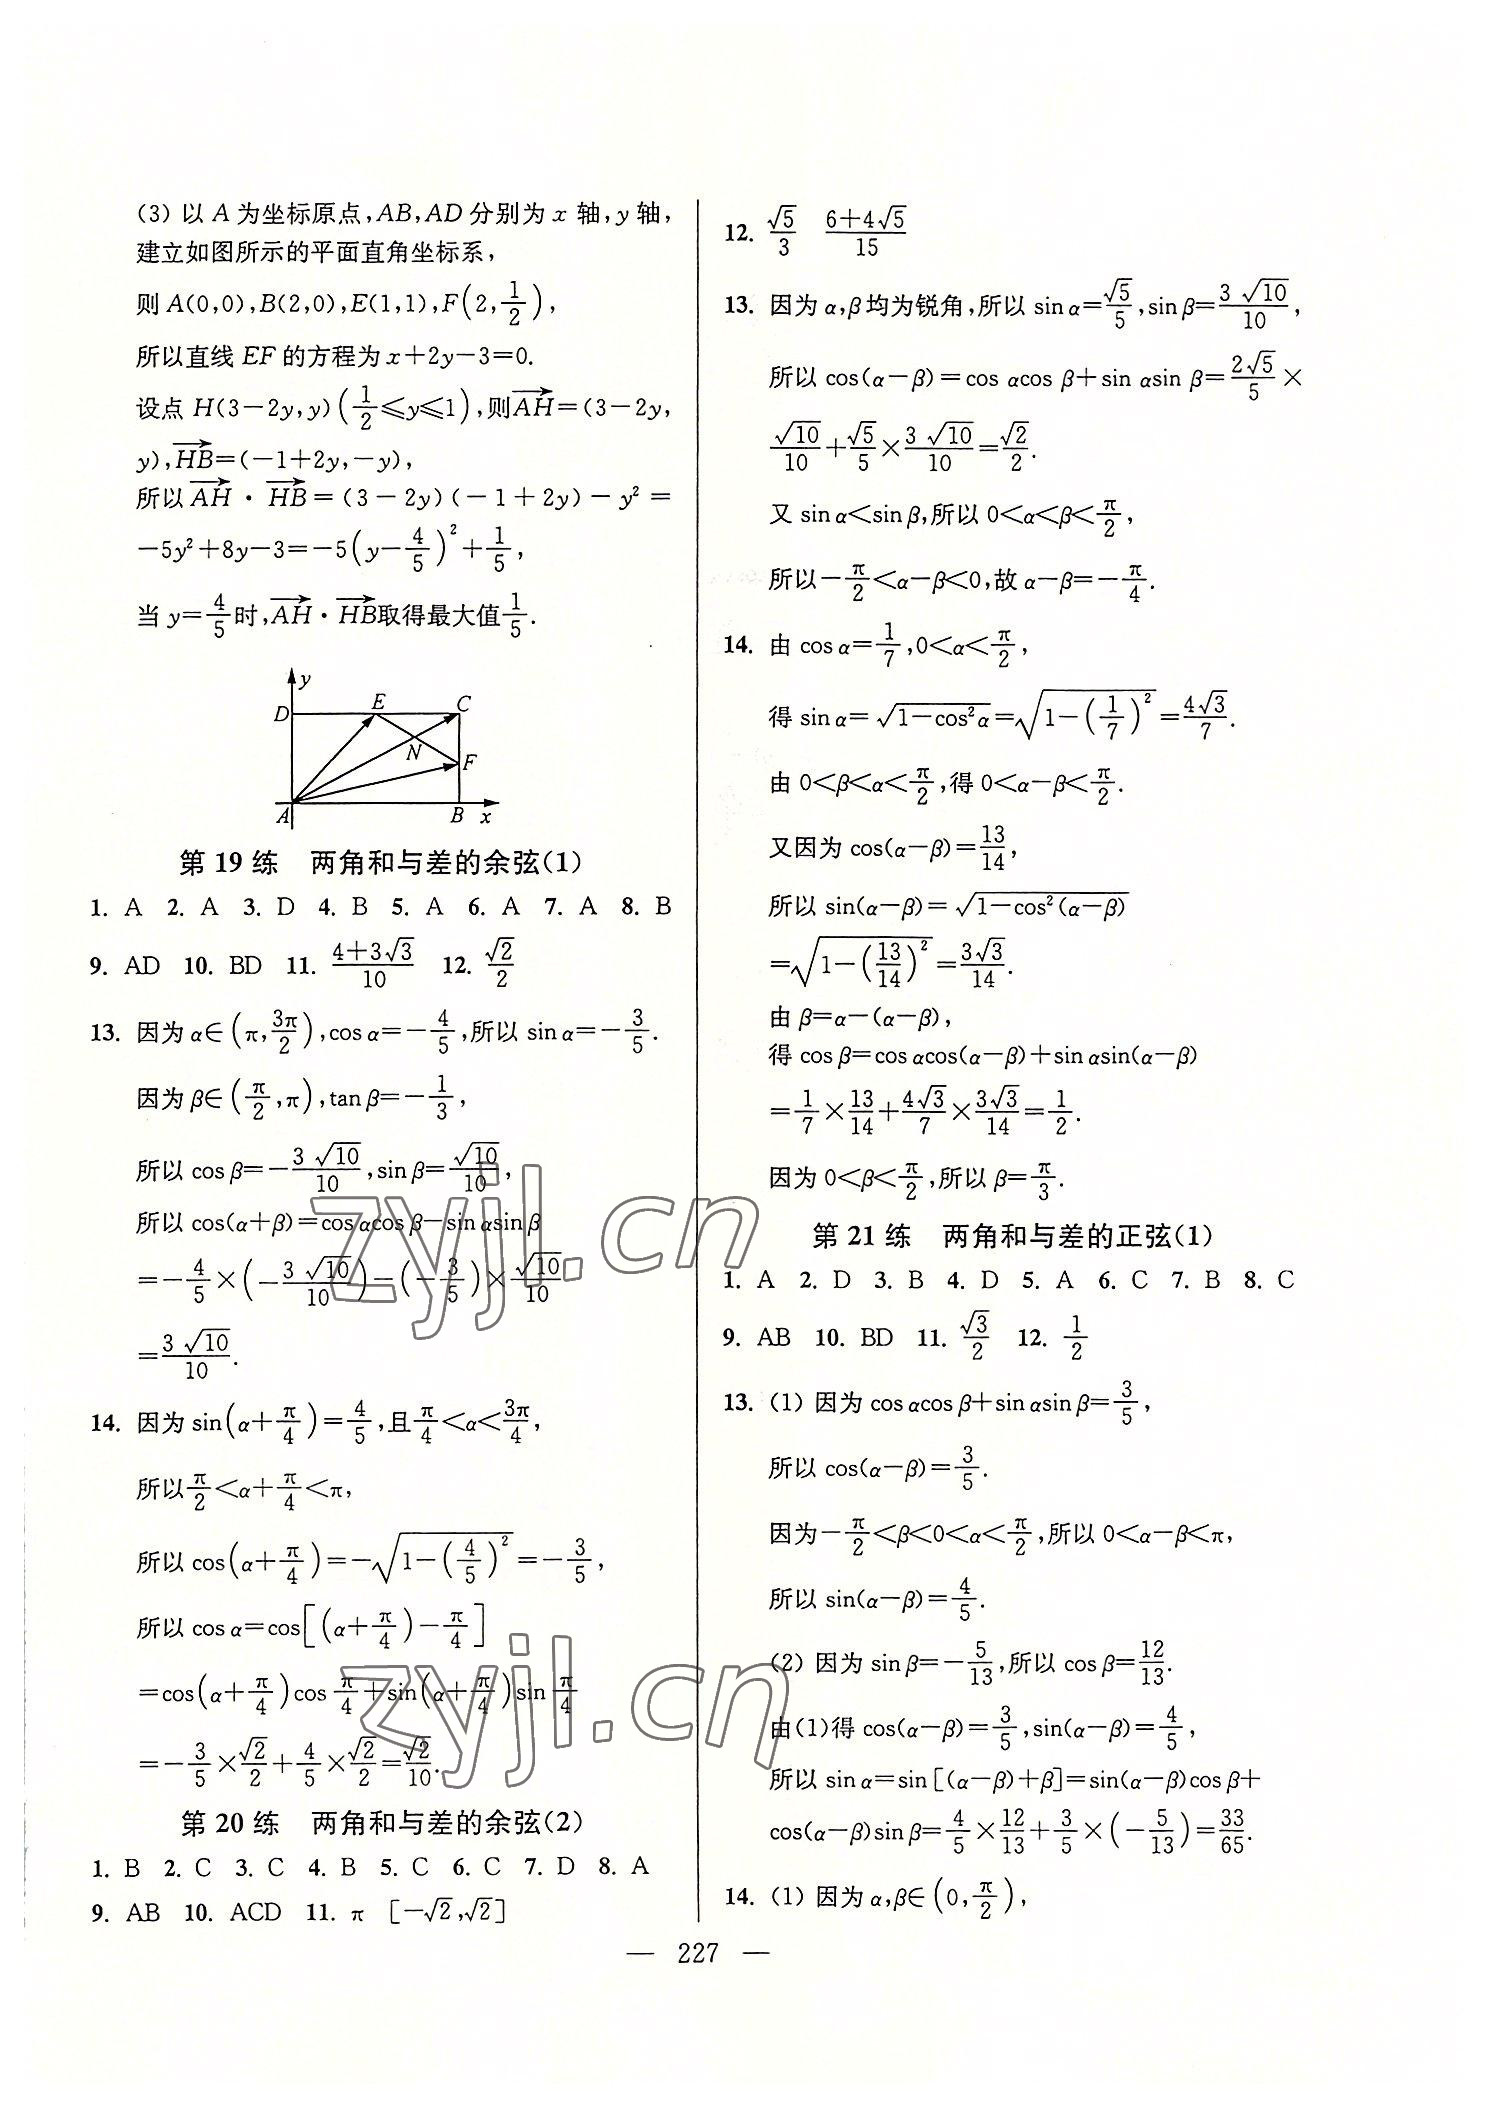 (3) 以 A 为坐标原点,AB,AD 分别为 x 轴,y 轴,
建立如图所示的平面直角坐标系,
则 A(0,0),B(2,0),E(1,1),F(2,1/2),
所以直线 EF 的方程为 x+2y-3=0.
设点 H(3-2y,y)(1/2≤y≤1),则→AH=(3-2y,
y),→HB=(-1+2y,-y),
所以→AH·→HB=(3-2y)(-1+2y)-y²=
-5y²+8y-3=-5(y-4/5)²+1/5,
当 y=4/5时,→AH·→HB取得最大值1/5.
y
D E C
N F
A B x
第 19 练 两角和与差的余弦(1)
1. A 2. A 3. D 4. B 5. A 6. A 7. A 8. B
9. AD 10. BD 11. (4+3√3)/10 12. √2/2
13. 因为 α∈(π,3π/2),cos α=-4/5,所以 sin α=-3/5.
因为 β∈(π/2,π),tan β=-1/3,
所以 cos β=-3√10/10,sin β=√10/10,
所以 cos(α+β)=cos αcos β-sin αsin β
=-4/5×(-3√10/10)-(-3/5)×√10/10
=3√10/10.
14. 因为 sin(α+π/4)=4/5,且π/4<α<3π/4,
所以π/2<α+π/4<π,
所以 cos(α+π/4)=-√(1-(4/5)²)=-3/5,
所以 cos α=cos[(α+π/4)-π/4]
=cos(α+π/4)cos π/4+sin(α+π/4)sin π/4
=-3/5×√2/2+4/5×√2/2=√2/10.
第 20 练 两角和与差的余弦(2)
1. B 2. C 3. C 4. B 5. C 6. C 7. D 8. A
9. AB 10. ACD 11. π [-√2,√2]
12. √5/3 (6+4√5)/15
13. 因为 α,β均为锐角,所以 sin α=√5/5,sin β=3√10/10,
所以 cos(α-β)=cos αcos β+sin αsin β=2√5/5×
√10/10+√5/5×3√10/10=√2/2.
又 sin α<sin β,所以 0<α<β<π/2,
所以-π/2<α-β<0,故 α-β=-π/4.
14. 由 cos α=1/7,0<α<π/2,
得 sin α=√(1-cos²α)=√(1-(1/7)²)=4√3/7.
由 0<β<α<π/2,得 0<α-β<π/2.
又因为 cos(α-β)=13/14,
所以 sin(α-β)=√(1-cos²(α-β))
=√(1-(13/14)²)=3√3/14.
由 β=α-(α-β),
得 cos β=cos αcos(α-β)+sin αsin(α-β)
=1/7×13/14+4√3/7×3√3/14=1/2.
因为 0<β<π/2,所以 β=π/3.
第 21 练 两角和与差的正弦(1)
1. A 2. D 3. B 4. D 5. A 6. C 7. B 8. C
9. AB 10. BD 11. √3/2 12. 1/2
13. (1) 因为 cos αcos β+sin αsin β=3/5,
所以 cos(α-β)=3/5.
因为-π/2<β<0<α<π/2,所以 0<α-β<π,
所以 sin(α-β)=4/5.
(2) 因为 sin β=-5/13,所以 cos β=12/13.
由(1)得 cos(α-β)=3/5,sin(α-β)=4/5,
所以 sin α=sin[(α-β)+β]=sin(α-β)cos β+
cos(α-β)sin β=4/5×12/13+3/5×(-5/13)=33/65.
14. (1) 因为 α,β∈(0,π/2),
— 227 —
zyjl.cn
zyjl.cn